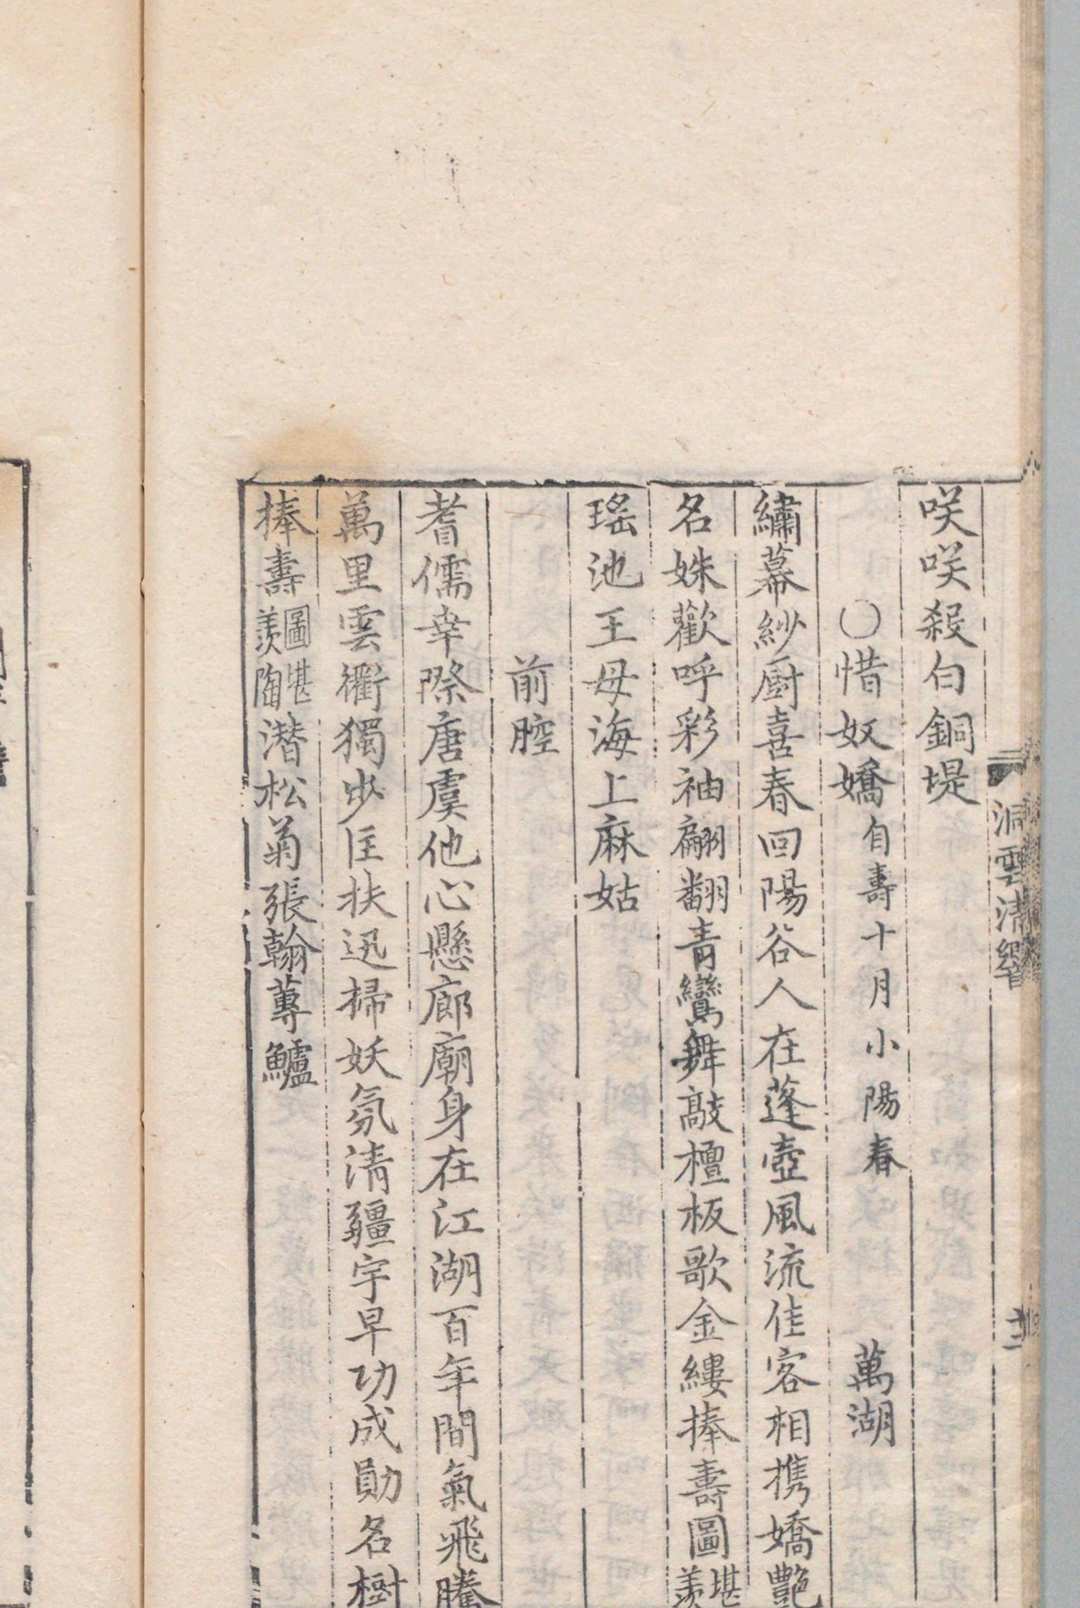 咲咲殺白銅堤
〇惜奴嬌自壽十月小陽春 萬湖
繡幕紗厨喜春回陽谷人在蓬壺風流佳客相携嬌艶
名姝歡呼彩袖翩翻青鸞舞敲檀板歌金縷捧壽圖堪羨
瑤池王母海上麻姑
前腔
耆儒幸際唐虞他心懸廊廟身在江湖百年間氣飛騰
萬里雲衢獨步匡扶迅掃妖氛清疆宇早功成勛名樹
捧壽圖堪羨陶潜松菊張翰蓴鱸
洞雲清